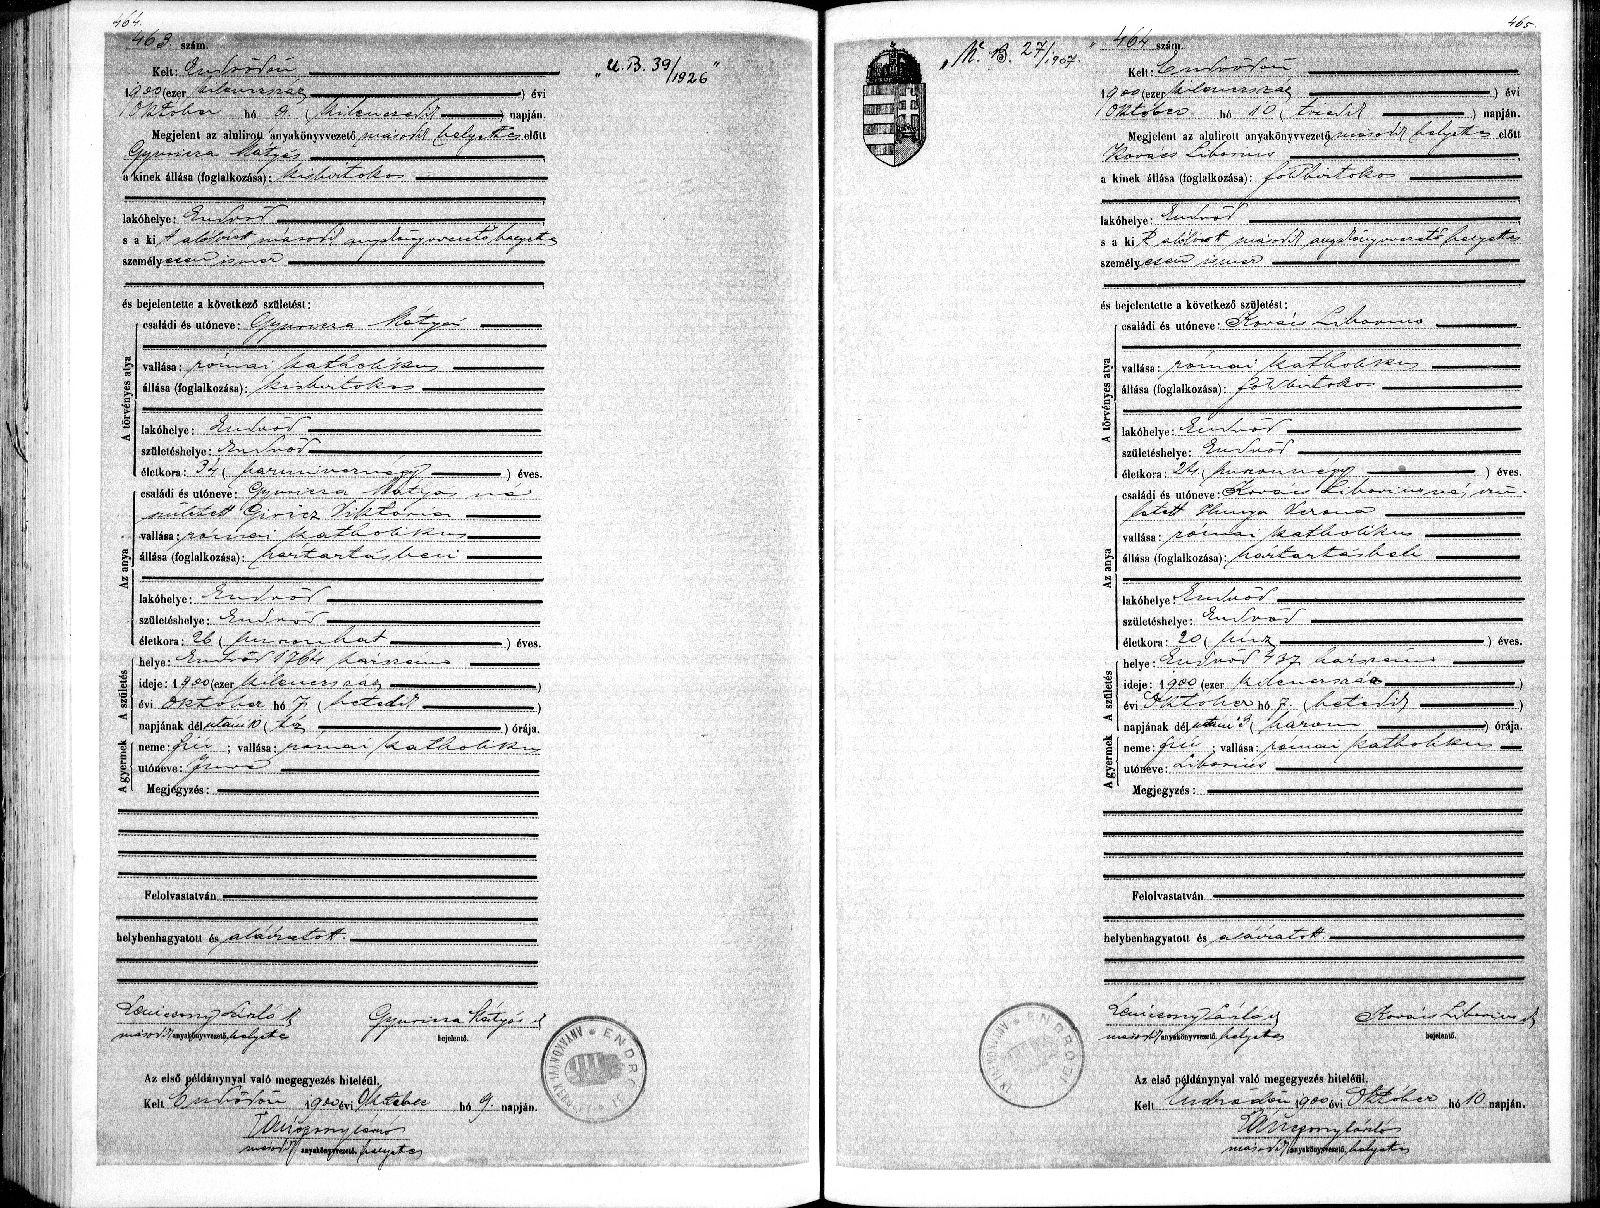 464.
463 szám.
"U. B. 39/1926"
Kelt: Endrődön
1900 (ezer kilencszáz) évi
Október hó 9. (kilencedik) napján.
Megjelent az alulirott anyakönyvvezető második helyettes előtt
Gyuricza Mátyás
a kinek állása (foglalkozása): kisbirtokos
lakóhelye: Endrőd
s a kit alólirt második anyakönyvvezető helyettes
személyesen ismer
és bejelentette a következő születést:
A törvényes atya
családi és utóneve: Gyuricza Mátyás
vallása: római katholikus
állása (foglalkozása): kisbirtokos
lakóhelye: Endrőd
születéshelye: Endrőd
életkora: 34 (harmincznégy) éves.
Az anya
családi és utóneve: Gyuricza Mátyás né
született Giricz Viktória
vallása: római katholikus
állása (foglalkozása): háztartásbeli
lakóhelye: Endrőd
születéshelye: Endrőd
életkora: 26 (huszonhat) éves.
A születés
helye: Endrőd 1764 házszám
ideje: 1900 (ezer kilencszáz)
évi október hó 7. (hetedik)
napjának délutáni 10 (tíz) órája.
A gyermek
neme: fiú; vallása: római katholikus
utóneve:
Megjegyzés:
Felolvastatván
helybenhagyatott és aláíratott.
László
második anyakönyvvezető helyettes
Gyuricza Mátyás
bejelentő.
ENDRŐDI ANYAKÖNYVI
Az első példánynyal való megegyezés hiteléül.
Kelt Endrődön 1900 évi Október hó 9 napján.
második anyakönyvvezető helyettes
465
464 szám.
"M. B. 27/1907."
Kelt: Endrődön
1900 (ezer kilencszáz) évi
Október hó 10 (tizedik) napján.
Megjelent az alulirott anyakönyvvezető második helyettes előtt
Kovács Liborius
a kinek állása (foglalkozása): földbirtokos
lakóhelye: Endrőd
s a kit alólirt második anyakönyvvezető helyettes
személyesen ismer
és bejelentette a következő születést:
A törvényes atya
családi és utóneve: Kovács Liborius
vallása: római katholikus
állása (foglalkozása): földbirtokos
lakóhelye: Endrőd
születéshelye: Endrőd
életkora: 24 (huszonnégy) éves.
Az anya
családi és utóneve: Kovács Liboriusné, szü-
letett Hunya Verona
vallása: római katholikus
állása (foglalkozása): háztartásbeli
lakóhelye: Endrőd
születéshelye: Endrőd
életkora: 20 (húsz) éves.
A születés
helye: Endrőd 437 házszám
ideje: 1900 (ezer kilencszáz)
évi Október hó 7. (hetedik)
napjának délutáni 3 (három) órája.
A gyermek
neme: fiú; vallása: római katholikus
utóneve: Liborius
Megjegyzés:
Felolvastatván
helybenhagyatott és aláíratott.
László
második anyakönyvvezető helyettes
Kovács Liborius
bejelentő.
ENDRŐDI ANYAKÖNYVI
Az első példánynyal való megegyezés hiteléül.
Kelt Endrődön 1900 évi Október hó 10 napján.
László
második anyakönyvvezető helyettes